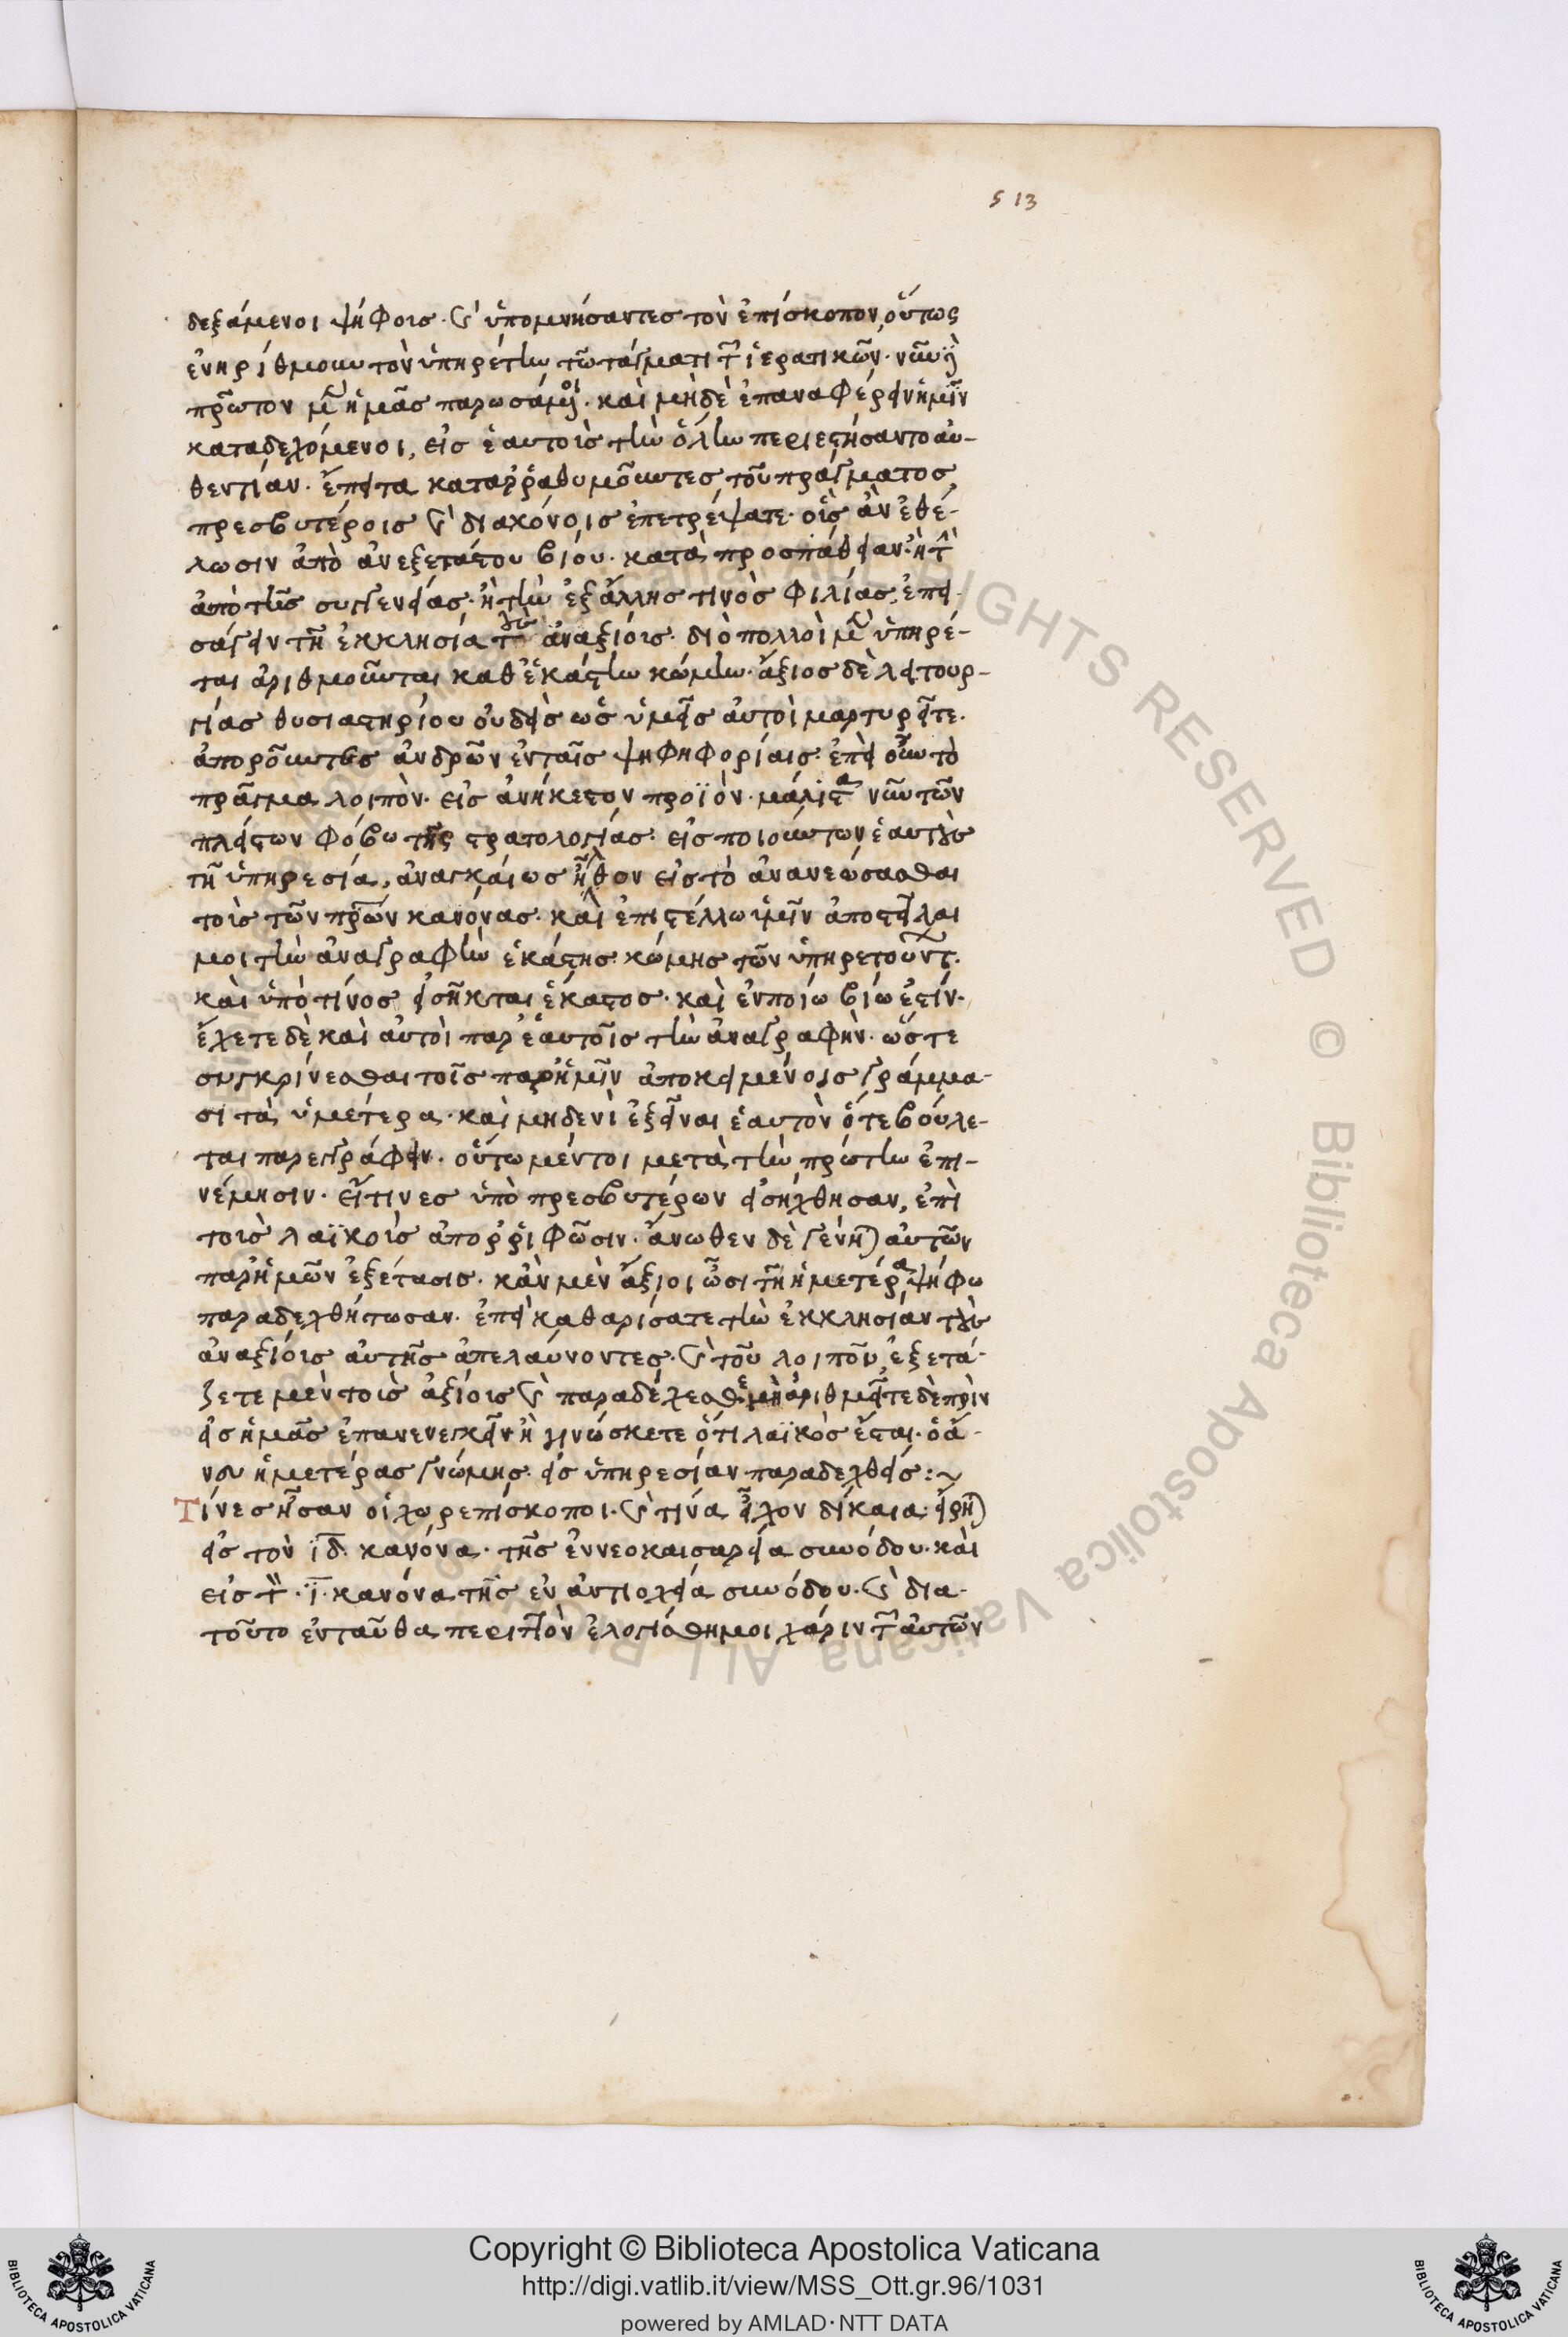 513
δεξάμενοι ψήφοις· καὶ ὑπομνήσαντες τὸν ἐπίσκοπον, οὕτως
ἐνηρίθμουν τὸν ὑπηρέτην τῶ τάγματι τῶν ἱερατικῶν· νῦν δὲ
πρῶτον μὲν ἡμᾶς παρωσάμενοι· καὶ μὴδὲ ἐπαναφέρειν ἡμῖν
καταδεχόμενοι, εἰς ἑαυτοὺς τὴν ὅλην περιεστήσαντο αὐ-
θεντίαν· ἔπειτα καταρῥαθυμοῦντες τοῦ πράγματος,
πρεσβυτέροις καὶ διακόνοις ἐπετρέψατε· οὓς ἂν ἐθέ-
λωσιν ἀπὸ ἀνεξετάστου βίου· κατὰ προσπάθειαν· ἢ τὴν
ἀπὸ τῆς συγγενείας· ἢ τὴν ἐξ ἄλλης τινὸς φιλίας, ἐπει-
σάγειν τῆ ἐκκλησία τοὺς ἀναξίους· διὸ πολλοὶ μὲν ὑπηρέ-
ται ἀριθμοῦνται καθ' ἑκάστην κώμην· ἄξιος δὲ λειτουρ-
γίας θυσιαστηρίου οὐδεὶς ὡς ὑμεῖς αὐτοὶ μαρτυρεῖτε·
ἀποροῦντες ἀνδρῶν ἐν ταῖς ψηφηφορίαις· ἐπεὶ οὖν τὸ
πρᾶγμα λοιπὸν· εἰς ἀνήκεστον προϊὸν· μάλιστα νῦν τῶν
πλείστων φόβω τῆς στρατολογίας· εἰσποιούντων ἑαυτοὺς
τῆ ὑπηρεσία, ἀναγκαίως ἦλθον εἰς τὸ ἀνανεώσασθαι
τοὺς τῶν πατέρων κανόνας· καὶ ἐπιστέλλω ὑμῖν ἀποστεῖλαι
μοι τὴν ἀναγραφὴν ἑκάστης κώμης τῶν ὑπηρετούντων·
καὶ ὑπὸ τίνος εἰσῆκται ἕκαστος· καὶ ἐν ποίω βίω ἐστίν·
ἔχετε δὲ καὶ αὐτοὶ παρ' ἑαυτοῖς τὴν ἀναγραφὴν· ὥστε
συγκρίνεσθαι τοῖς παρ' ἡμῖν ἀποκειμένοις γράμμα-
σι τὰ ὑμέτερα· καὶ μηδενὶ ἐξεῖναι ἑαυτὸν ὅτε βούλε-
ται παρεγγράφειν· οὕτω μέντοι μετὰ τὴν πρώτην ἐπι-
νέμησιν· εἴ τινες ὑπὸ πρεσβυτέρων εἰσήχθησαν, ἐπὶ
τοὺς λαϊκοὺς ἀποῤῥιφῶσιν· ἄνωθεν δὲ γένηται αὐτῶν
παρ' ἡμῶν ἐξέτασις· κἂν μὲν ἄξιοι ὦσι τῆ ἡμετέρα ψήφω
παραδεχθήτωσαν· ἐπεὶ καθαρίσατε τὴν ἐκκλησίαν τοὺς
ἀναξίους αὐτῆς ἀπελαύνοντες· καὶ τοῦ λοιποῦ, ἐξετά-
ζετε μὲν τοὺς ἀξίους καὶ παραδέχεσθε· μὴ ἀριθμεῖτε δὲ πρὶν
εἰς ἡμᾶς ἐπανενεγκεῖν ἢ γινώσκετε ὅτι λαϊκὸς ἔσται· ὁ ἄ-
νευ ἡμετέρας γνώμης· εἰς ὑπηρεσίαν παραδεχθείς:~
Τίνες ἦσαν οἱ χωρεπίσκοποι· καὶ τίνα εἶχον δίκαια· εἴρηται
εἰς τὸν ιδ· κανόνα· τῆς ἐν νεοκαισαρεία συνόδου· καὶ
εἰς τὸν· ι· κανόνα τῆς ἐν ἀντιοχεία συνόδου· καὶ δια-
τοῦτο ἐνταῦθα περιττὸν ἐλογίσθη μοι χάριν τῶν αὐτῶν
Copyright © Biblioteca Apostolica Vaticana
http://digi.vatlib.it/view/MSS_Ott.gr.96/1031
powered by AMLAD·NTT DATA
BIBLIOTECA APOSTOLICA VATICANA
BIBLIOTECA APOSTOLICA VATICANA